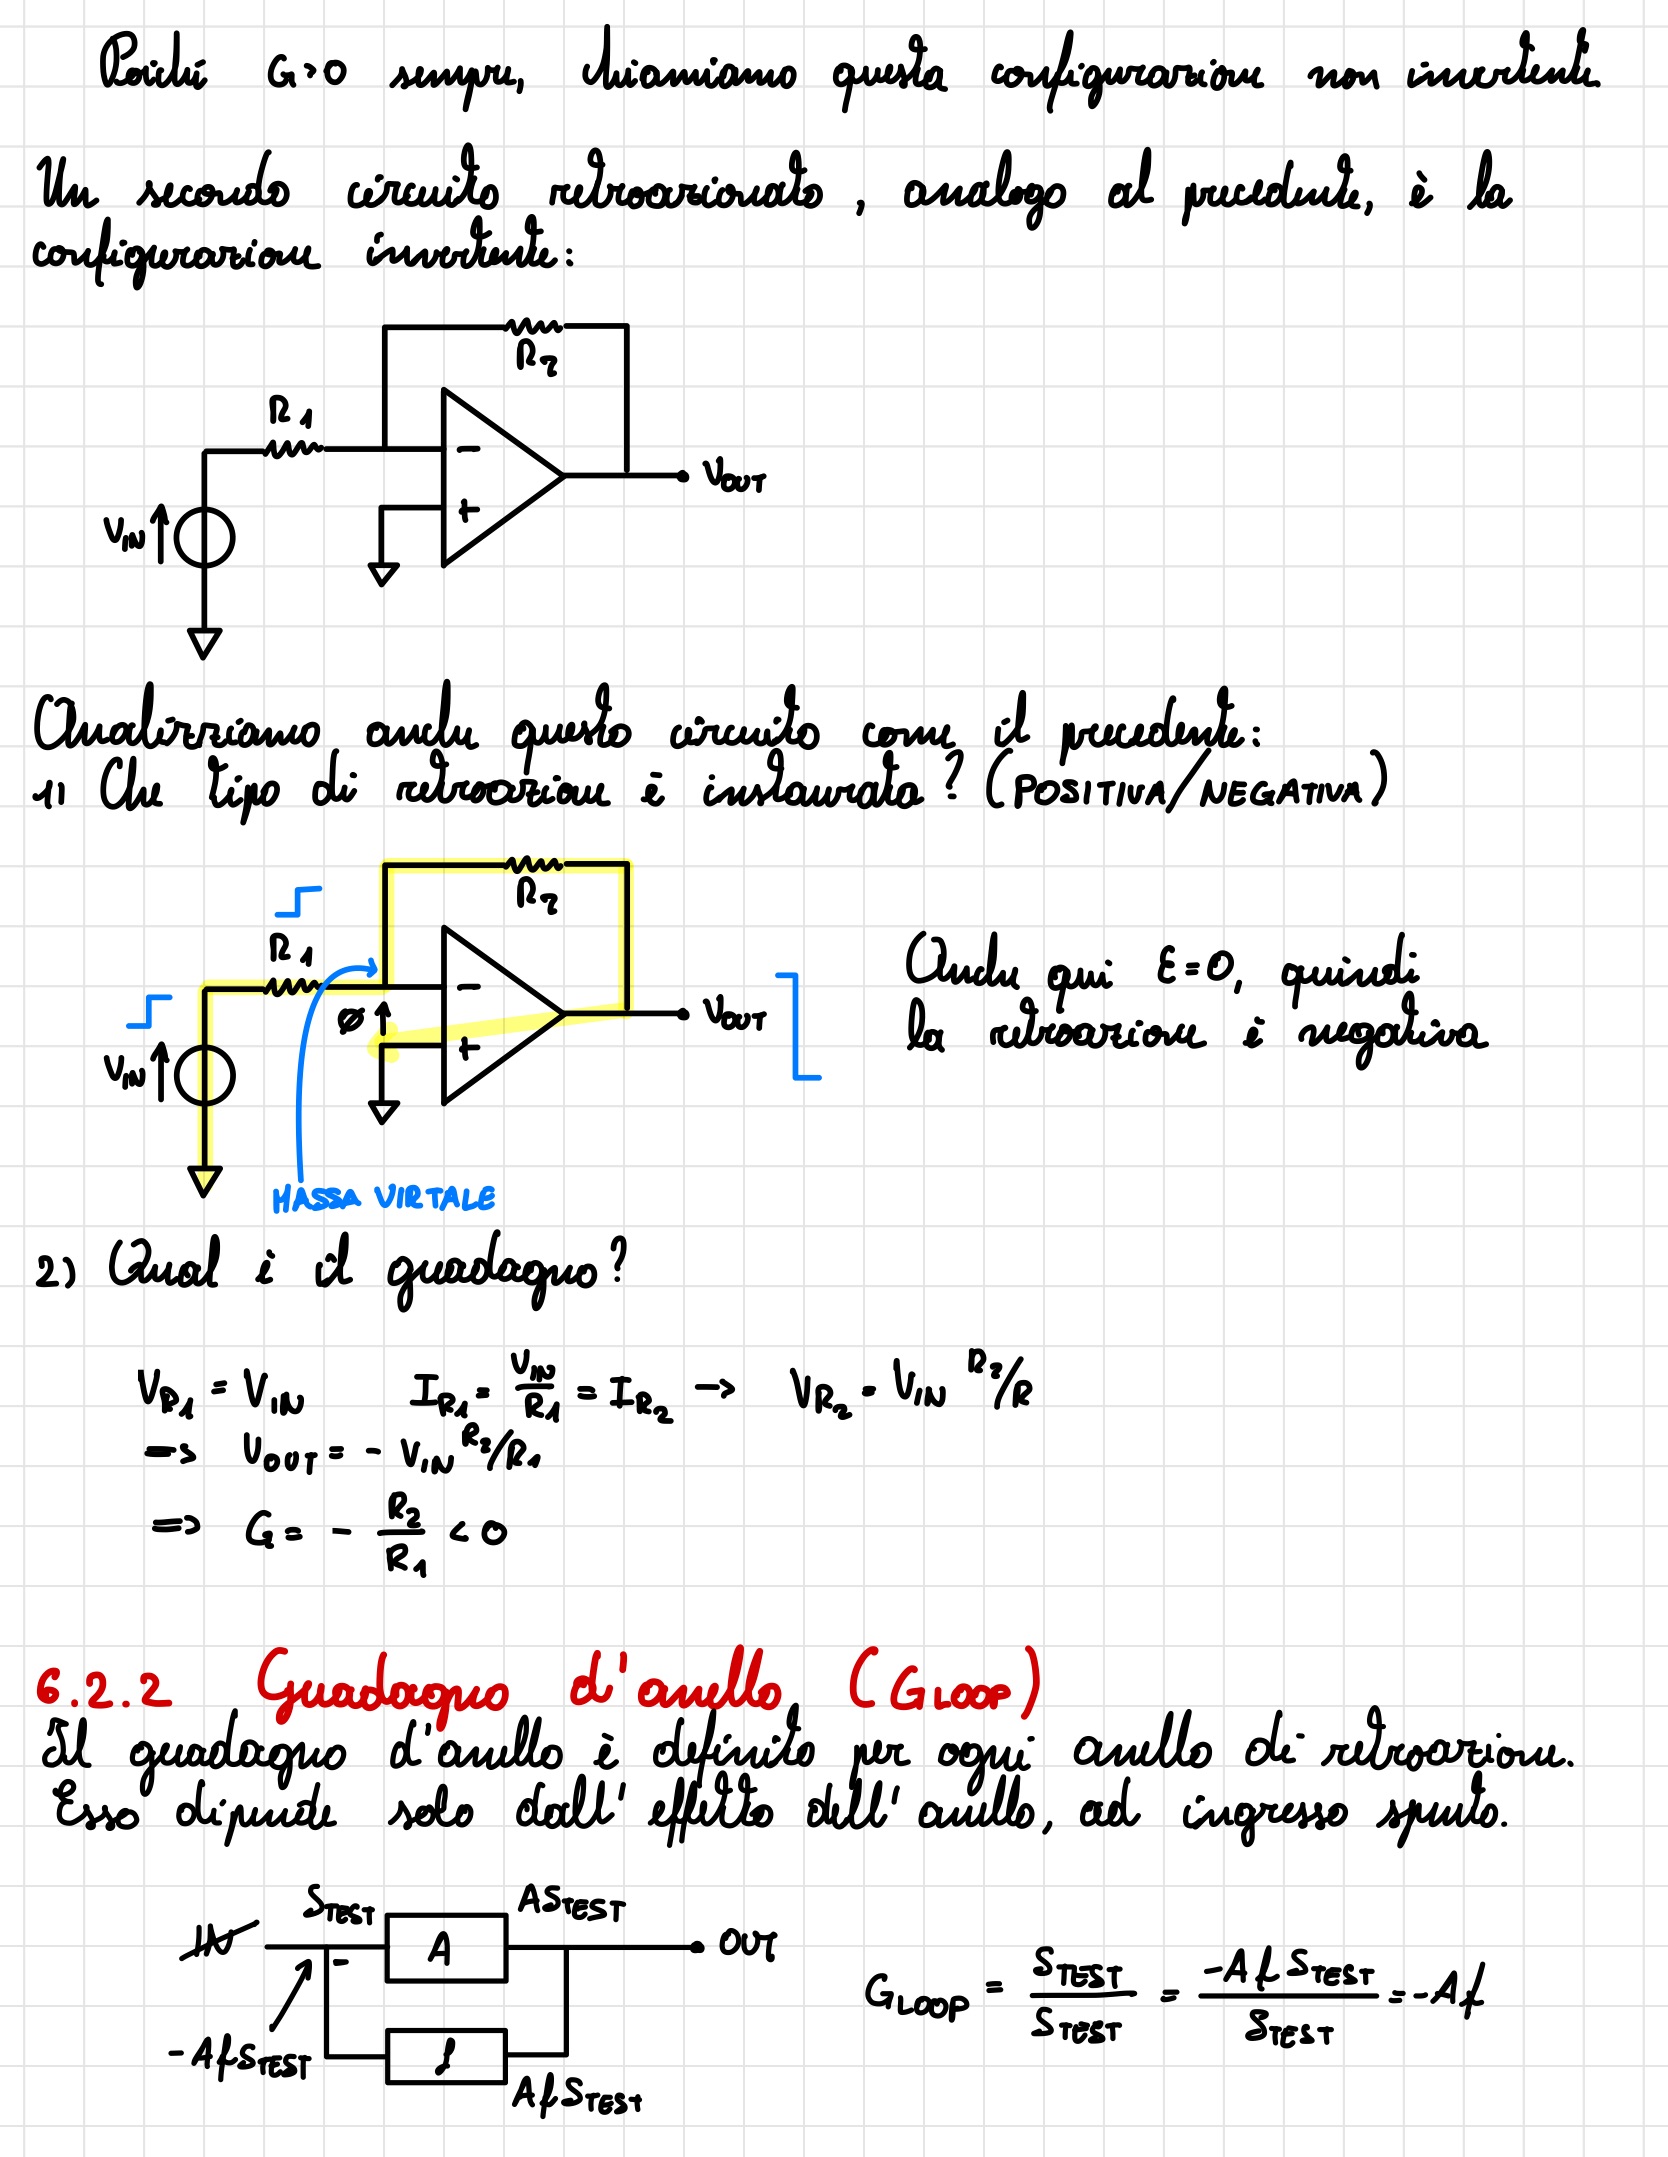 Poiché G>0 sempre, chiamiamo questa configurazione non invertente
Un secondo circuito retroazionato, analogo al precedente, è la
configurazione invertente:
R2
R1
-
+
VIN
VOUT
Analizziamo anche questo circuito come il precedente:
1) Che tipo di retroazione è instaurata? (POSITIVA/NEGATIVA)
R2
R1
-
Ø
+
VIN
VOUT
MASSA VIRTALE
Anche qui ε=0, quindi
la retroazione è negativa
2) Qual è il guadagno?
VR1 = VIN IR1 = VIN/R1 = IR2 → VR2 = VIN R2/R
=> VOUT = - VIN R2/R1
=> G = - R2/R1 < 0
6.2.2 Guadagno d'anello (GLOOP)
Il guadagno d'anello è definito per ogni anello di retroazione.
Esso dipende solo dall'effetto dell'anello, ad ingresso spento.
IN
STEST
ASTEST
A
OUT
-
-AfSTEST
f
AfSTEST
GLOOP = STEST/STEST = -AfSTEST/STEST = -Af